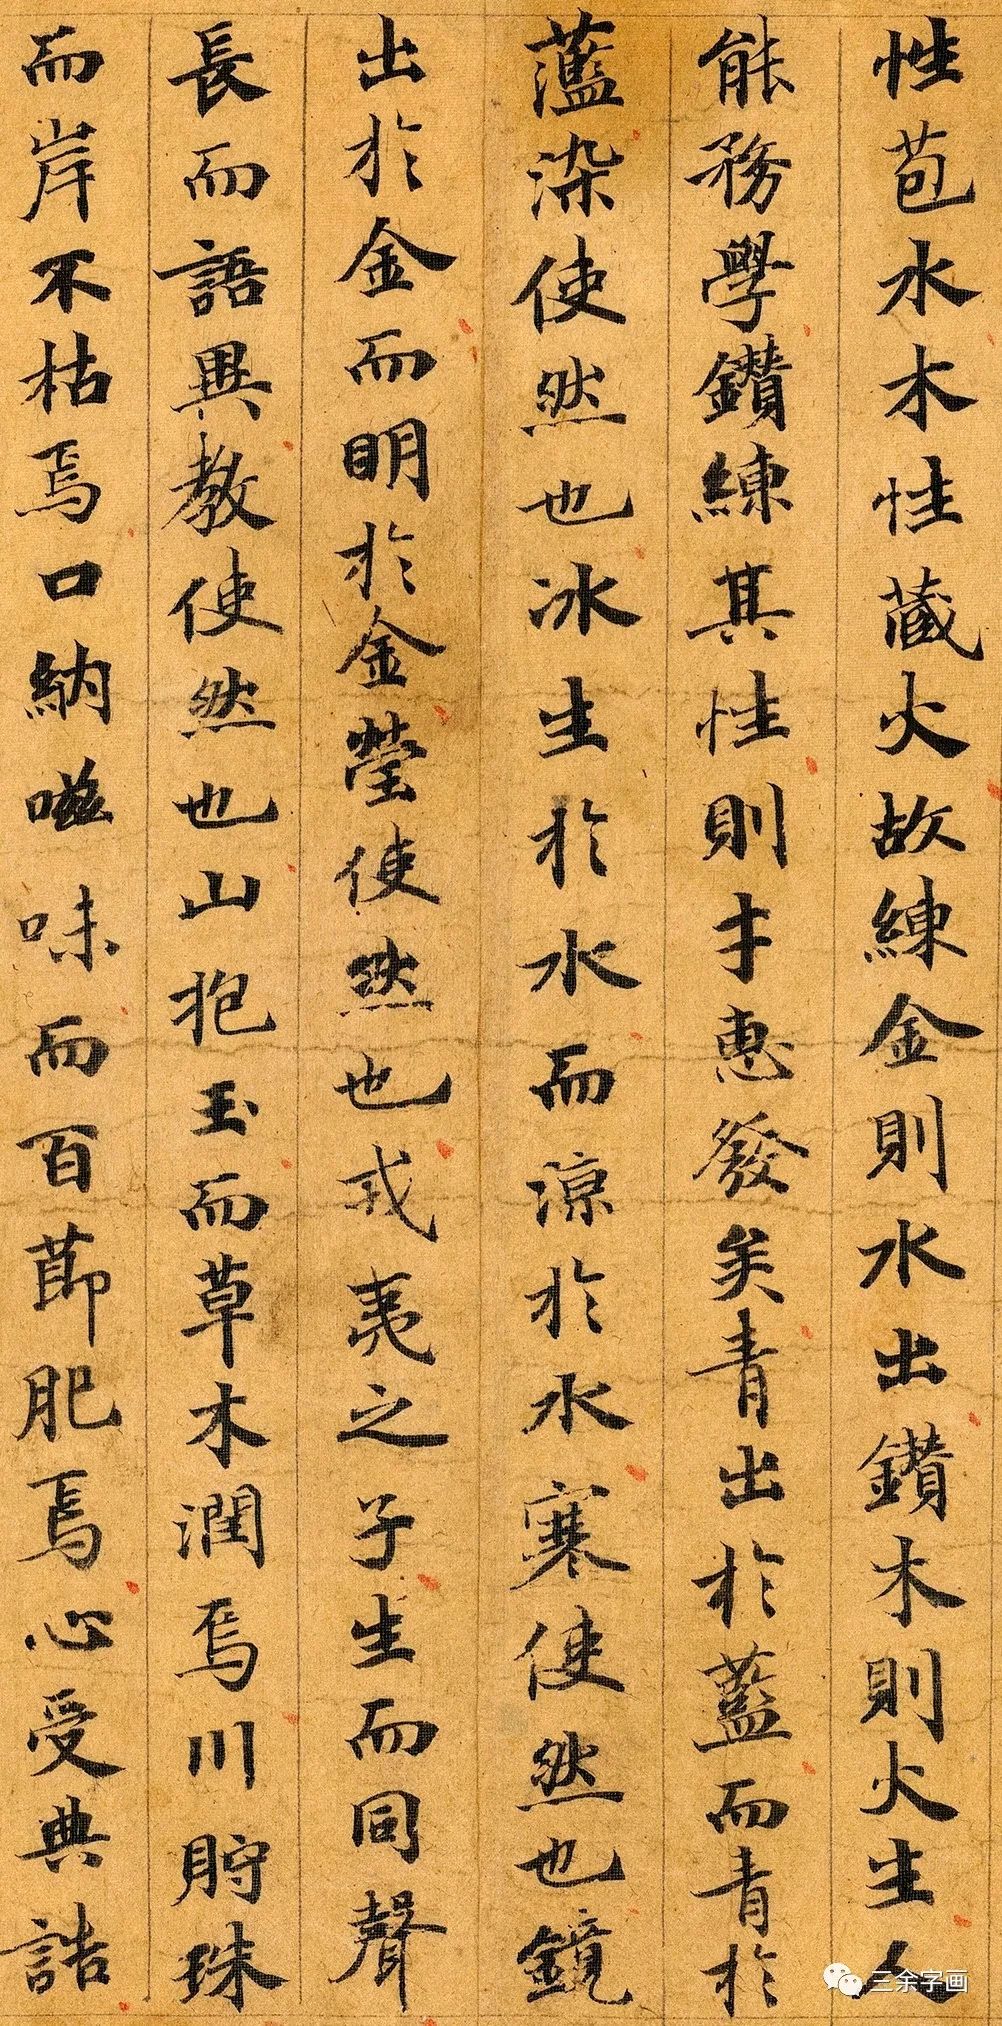 性苞水木性蔵火故練金則水出鑚木則火生人
能務學鑚練其性則才惠發矣青出於藍而青於
藍染使然也冰生於水而涼於水寒使然也鏡
出於金而明於金瑩使然也戎夷之子生而同聲
長而語異教使然也山抱玉而草木潤焉川貯珠
而岸不枯焉口納滋味而百節肥焉心受典誥
三余字画